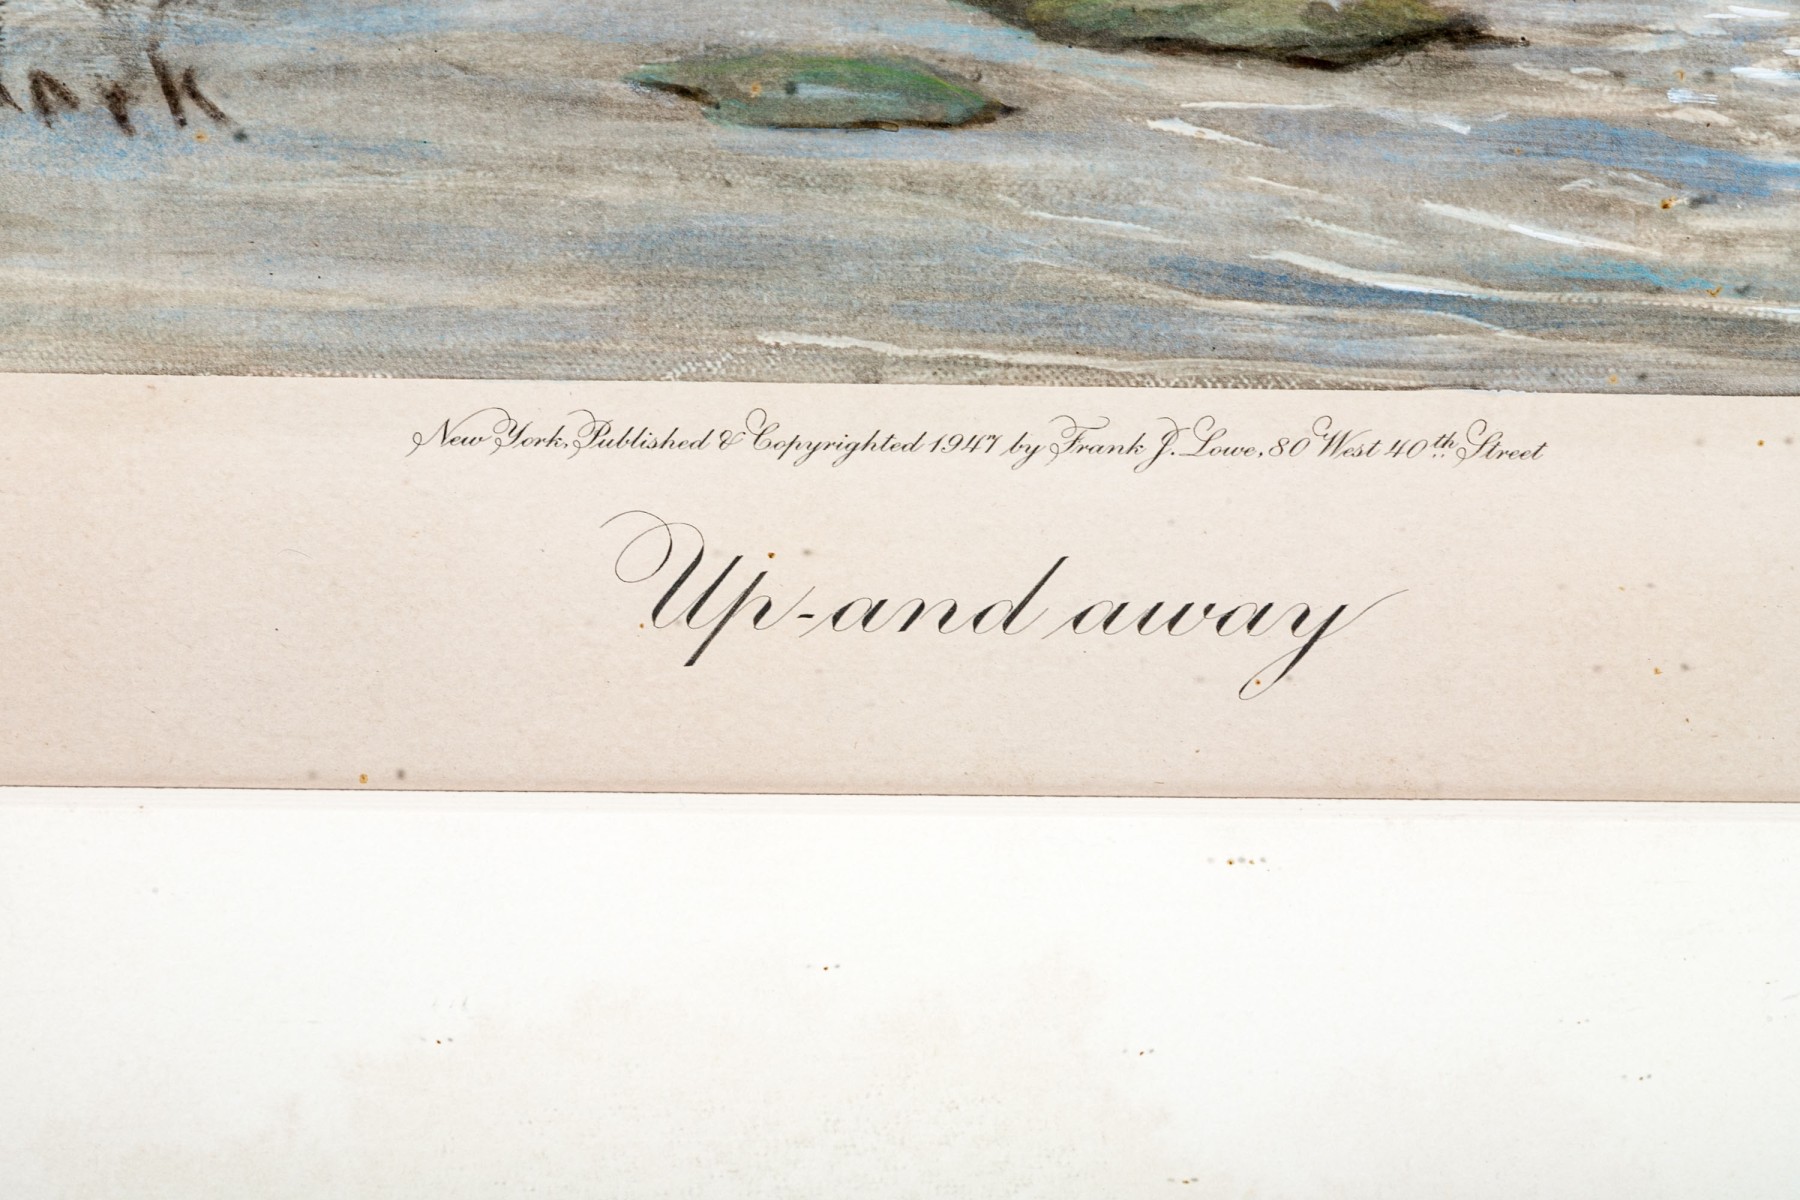 New York, Published & Copyrighted 1947 by Frank J. Lowe, 80 West 40th Street
Up-and away